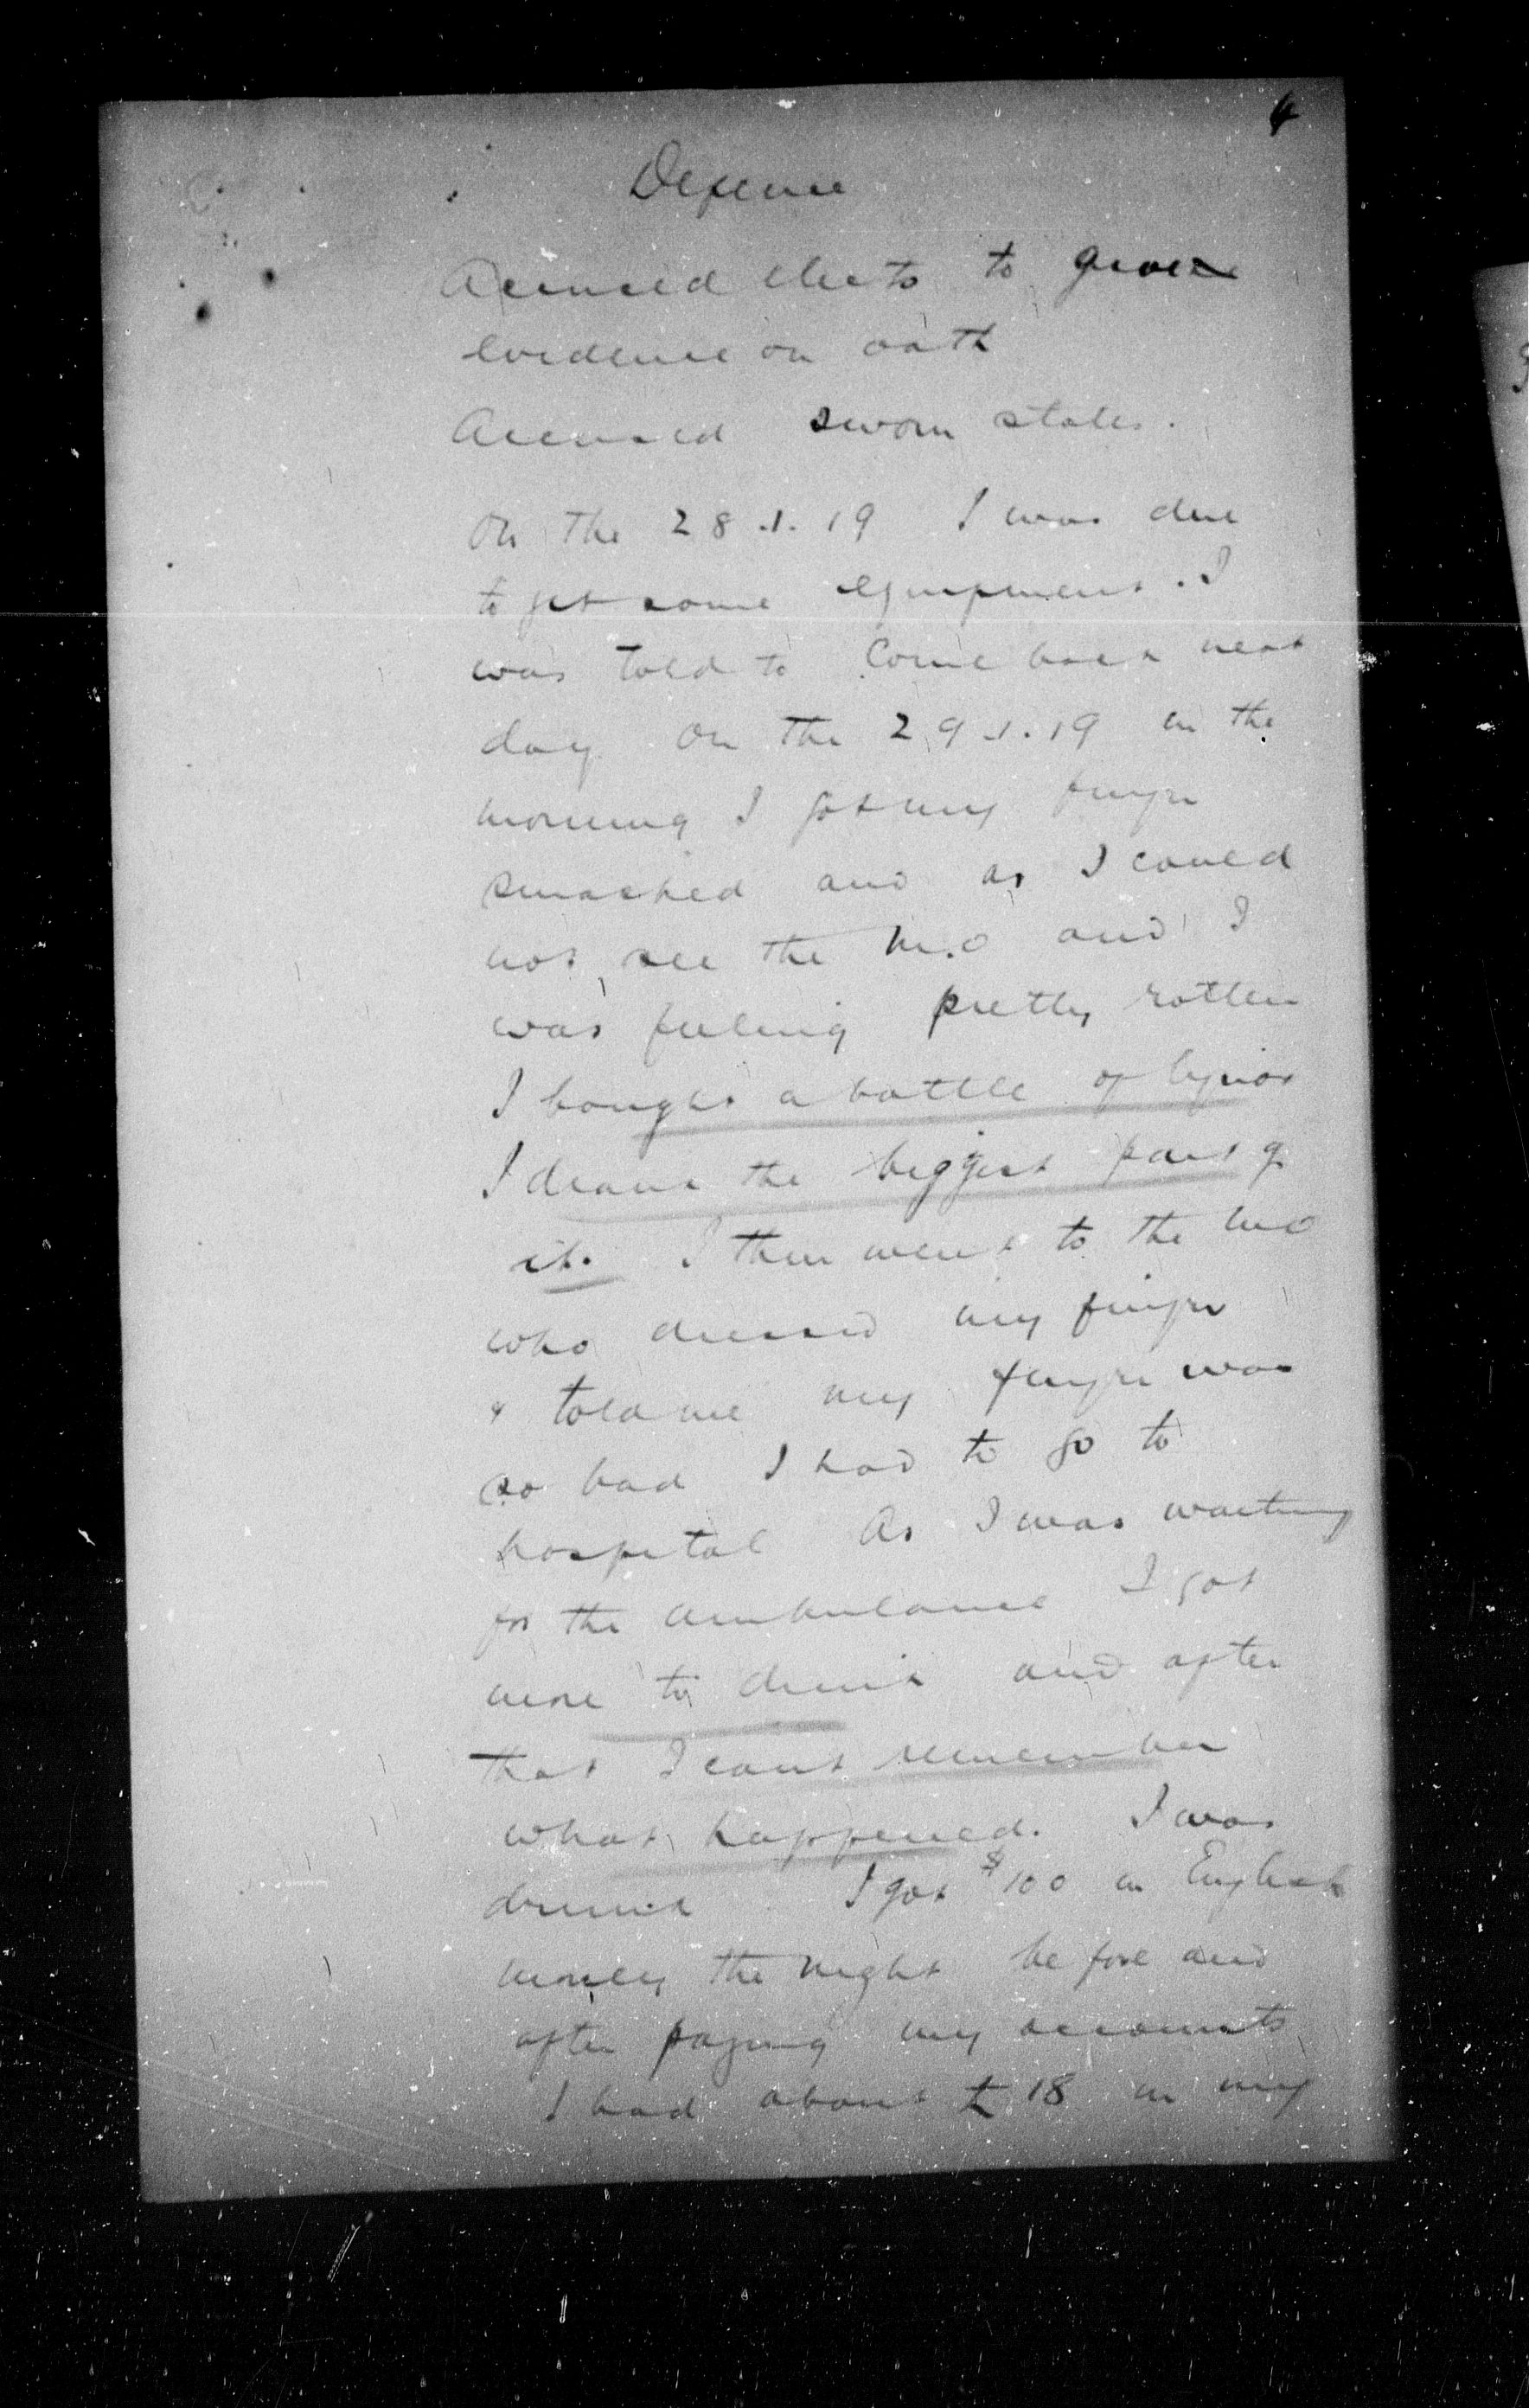 4
Defence
Accused elects to give
evidence on oath
Accused sworn states.
On the 28.1.19 I was due
to get some equipment. I
was told to come back next
day on the 29.1.19 in the
morning I got my finger
smashed and as I could
not see the M.O and I
was feeling pretty rotten
I bought a bottle of liquor
I drank the biggest part of
it. I then went to the MO
who dressed my finger
& told me my finger was
so bad I had to go to
hospital As I was waiting
for the ambulance I got
more to drink and after
that I cant remember
what happened. I was
drunk I got $100 in English
money the night before and
after paying my accounts
I had about £18 in my